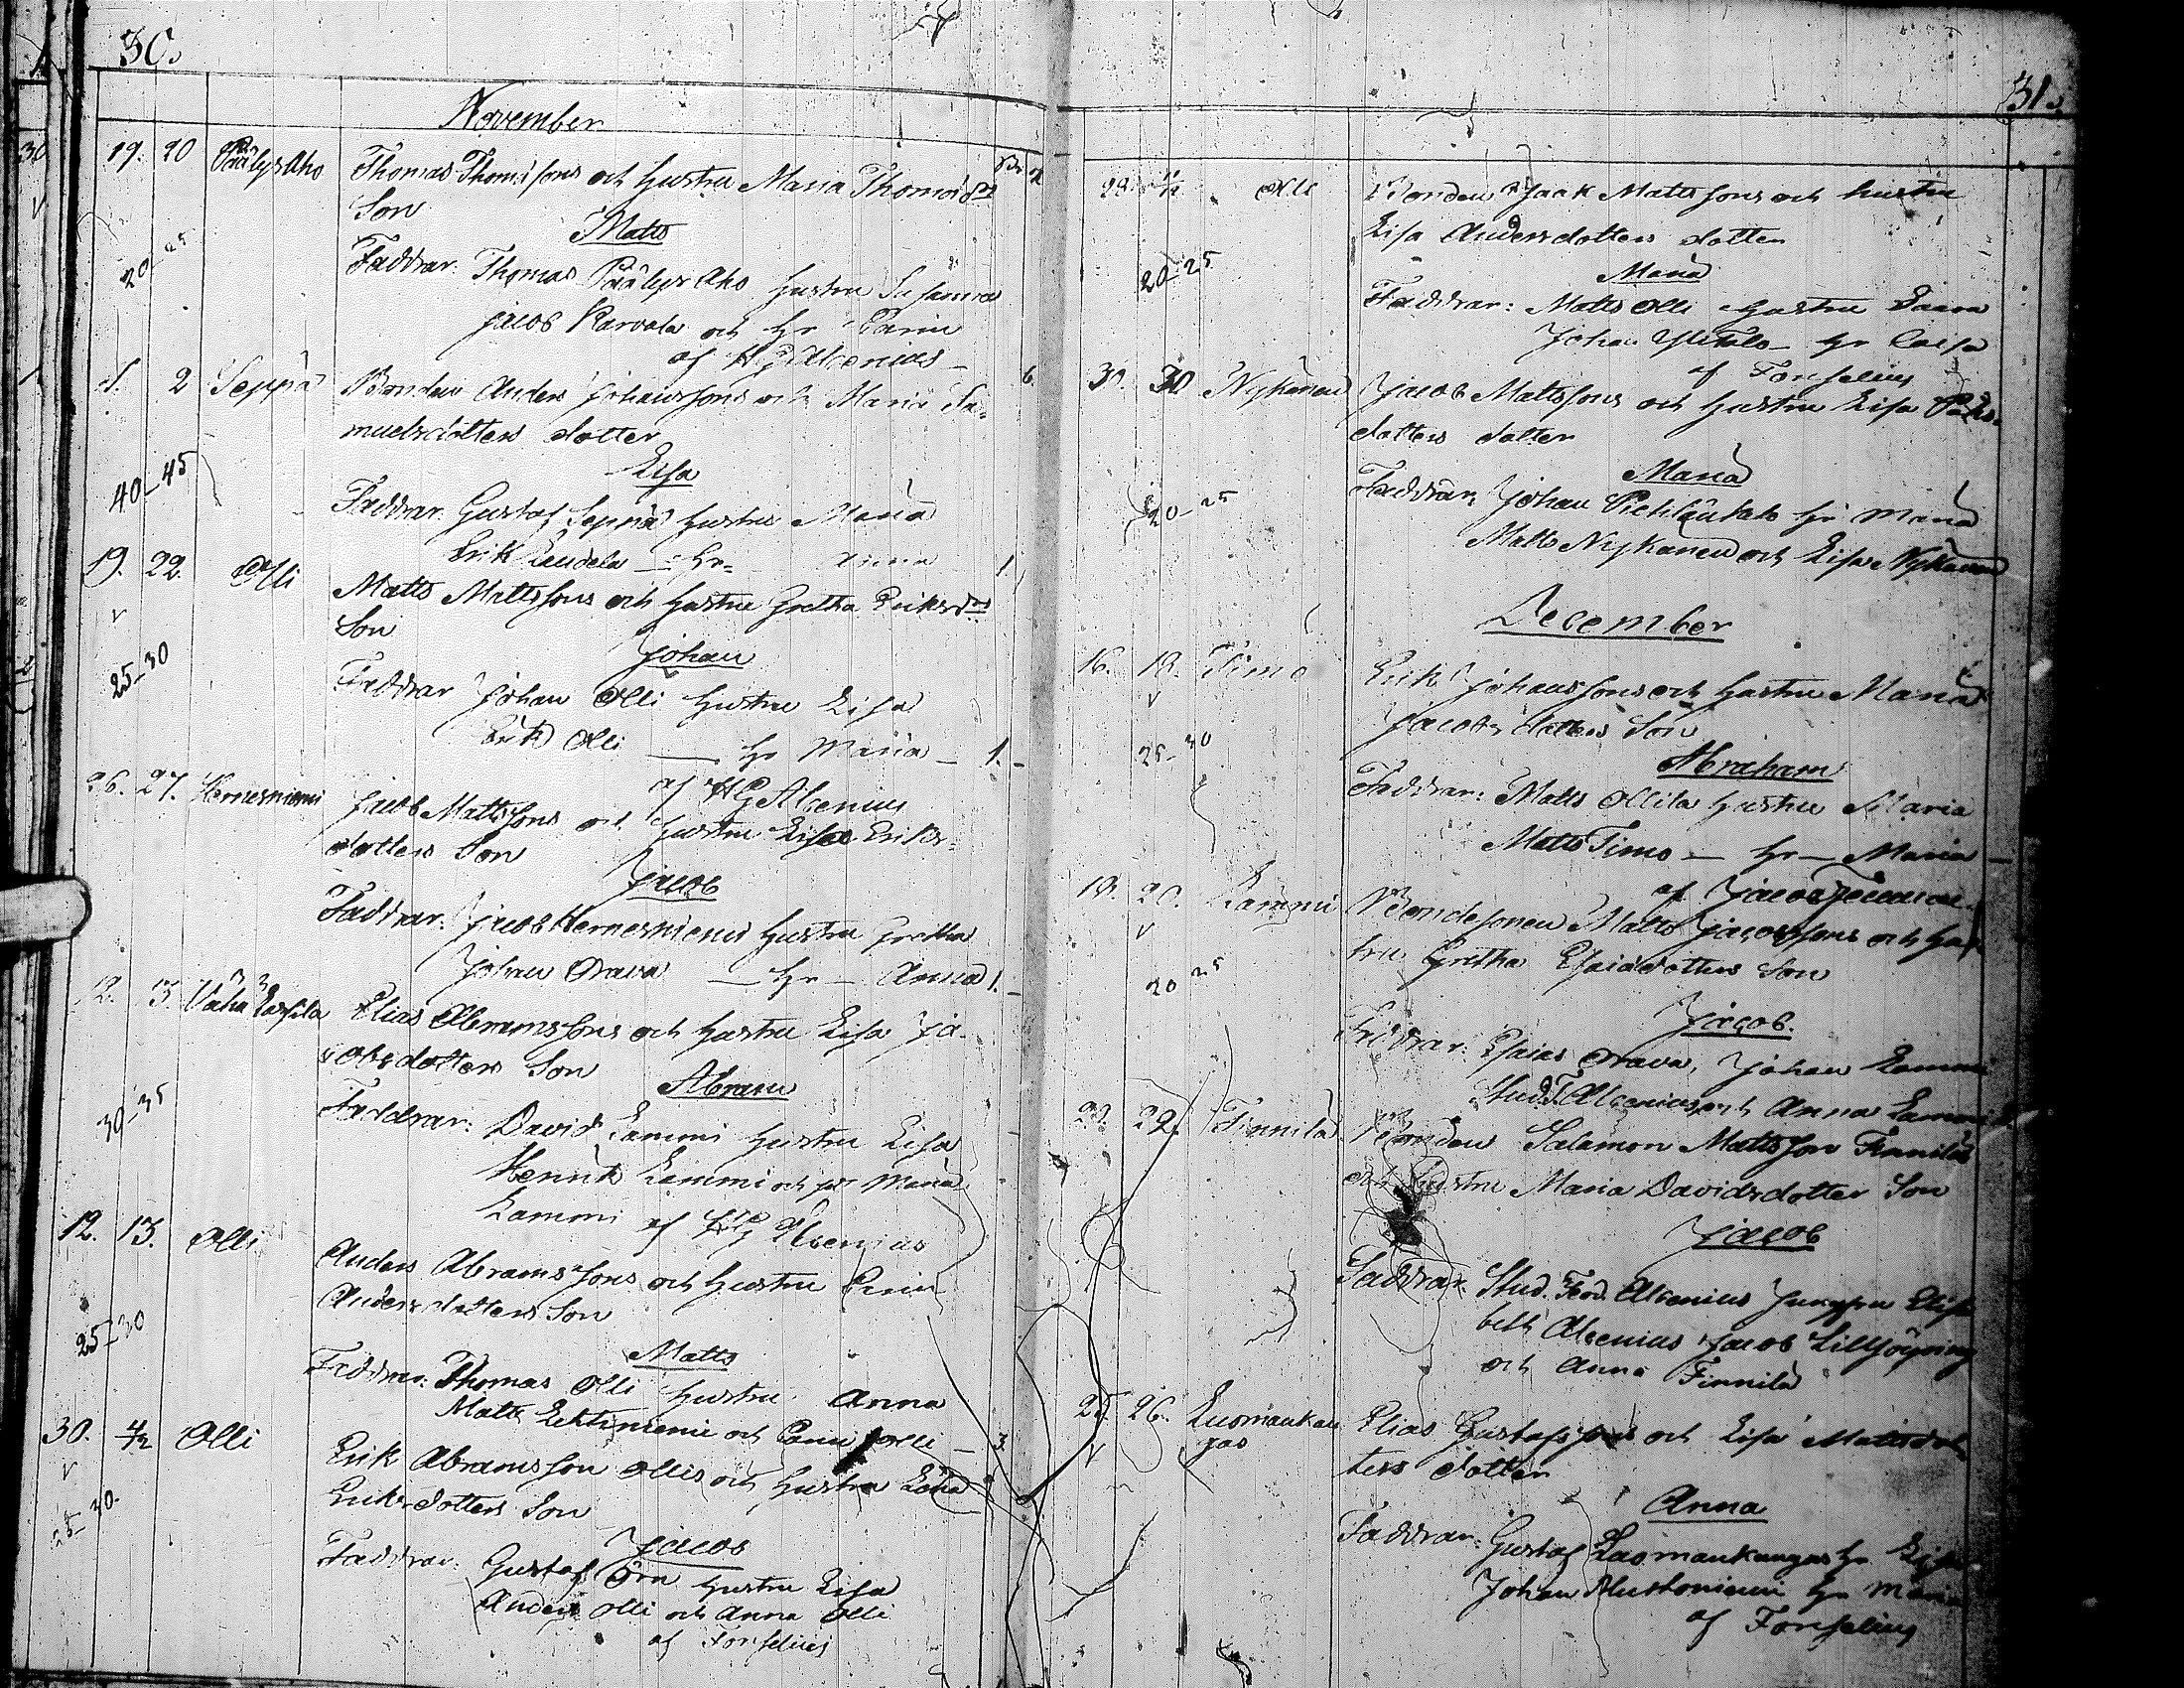 30.
November
19. 20 Päälys Aho Thomas Thomæsons och Hustru Maria Thomæd:rs
Son
Matts
20-25
Faddrar: Thomas Päälys Aho Hustru Susanna
Jacob Karvala och Hr Carin
af H G Alcenius
1. 2 Seppä Bonden Anders Johanssons och Maria Sa-
muelsdotters dotter
Lisa
40-45
Faddrar: Gustaf Seppä hustru Maria
Erik - Hr - Anna 1.
19. 22. Olli Matts Mattssons och Hustru Gretha Eriksd:rs
Son
Johan
25-30
Faddrar Johan Olli Hustru Lisa
Erik Olli - Hr Maria - 1.
af H G Alcenius
26. 27. Hernesniemi Jacob Mattssons och Hustru Lisa Eriks-
dotters Son
Jacob
Faddrar: Jacob Hernesniemi Hustru Gretha
Johan Orava - Hr - Anna 1.
12. 13 Vähä Lassila Elias Abramssons och Hustru Lisa Ja-
cobsdotters Son
Abram
30-35
Faddrar: David Lammi Hustru Lisa
Henrik Lammi och Maria
Lammi af H G Alcenius
12. 13. Olli Anders Abramssons och Hustru Carin
Andersdotters Son
Matts
25-30
Faddrar: Thomas Olli Hustru Anna
Matts Lehtiniemi och Carin Olli - 3.
30. 4/12 Olli Erik Abramsson Ollis och Hustru Lena
Eriksdotters Son
Jacob
25-30.
Faddrar: Gustaf Örn Hustru Lisa
Anders Olli och Anna Olli
af Forselius
31.
Olli Bonden Isaak Mattssons och hustru
Lisa Andersdotters dotter
Maria
20-25
Faddrar: Matts Olli Hustru Saara
Johan Ylitalo - Hr Caisa
af Forselius
30. 30 Nykänen Jacob Mattssons och Hustru Lisa
dotters dotter
Maria
20-25
Faddrar: Johan Hr Maria
Matts Nykänen och Lisa Nykänen
December
16. 18. Timo Erik Johanssons och Hustru Maria
Jacobsdotters Son
Abraham
25-30
Faddrar: Matts Ollila Hustru Maria
Matts Timo - Hr - Maria -
af Jacob
18. 20. Lammi Bondesonen Matts Jacobssons och Hu-
stru Gretha Esaiadotters Son
Jacob.
20 25
Faddrar: Esaias Orava, Johan Lammi
Stud. F. Alcenius och Anna Lammi
22. 22. Finnilä Bonden Salamon Mattsson Finnilä
och Hustru Maria Davidsdotter Son
Jacob
Faddrar: Stud. Fred. Alcenius Jungfru Elisa
beth Alcenius Jacob Lilljöqvist
och Anna Finnilä
25. 26. Luomankan
gas Elias Gustafssons och Lisa Mattsdot
ters dotter
Anna
Faddrar: Gustaf Luomankangas Hr Lisa
Johan Mustoniemi Hr Maria
af Forselius